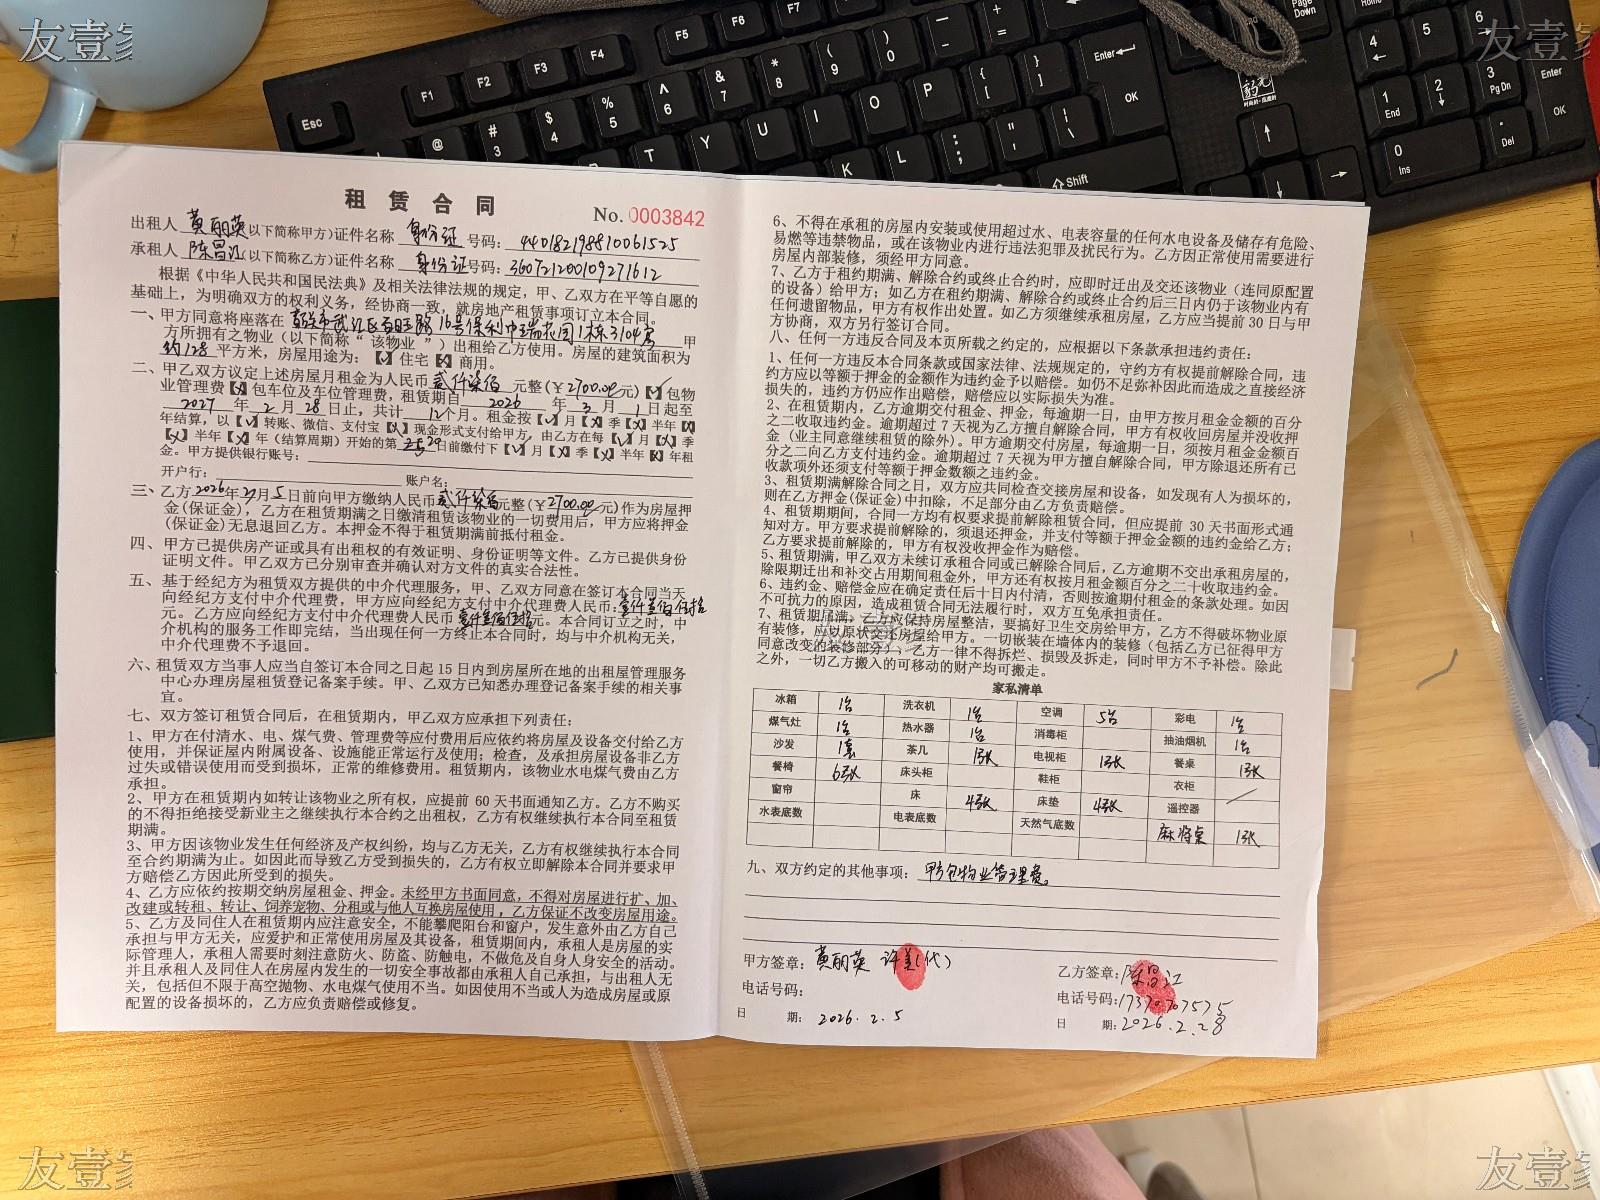 友壹家
友壹家
租赁合同
No.0003842
出租人 黄丽英 以下简称甲方)证件名称 身份证 号码: 440182198810061525
承租人 陈昌江 (以下简称乙方)证件名称 身份证 号码: 360721200109271612
根据《中华人民共和国民法典》及相关法律法规的规定,甲、乙双方在平等自愿的
基础上,为明确双方的权利义务,经协商一致,就房地产租赁事项订立本合同。
一、甲方同意将座落在 武江区百旺路16号保利中瑞花园1栋3104房 甲
方所拥有之物业(以下简称“该物业”)出租给乙方使用。房屋的建筑面积为
约128 平方米,房屋用途为:【✓】住宅【✗】商用。
二、甲乙双方议定上述房屋月租金为人民币 贰仟柒佰 元整(¥2700.00元)【✓】包物
业管理费【✗】包车位及车位管理费,租赁期自 2026 年 3 月 1 日起至
2027 年 2 月 28 日止,共计 12 个月。租金按【✓】月【✗】季【✗】半年【✗】
年结算,以【✓】转账、微信、支付宝【✗】现金形式支付给甲方,由乙方在每【✓】月【✗】季
【✗】半年【✗】年(结算周期)开始的第 日前缴付下【✓】月【✗】季【✗】半年【✗】年租
金。甲方提供银行账号:
开户行: 账户名:
三、乙方2026年2月5日前向甲方缴纳人民币贰仟柒佰元整(¥2700.00元)作为房屋押
金(保证金),乙方在租赁期满之日缴清租赁该物业的一切费用后,甲方应将押金
(保证金)无息退回乙方。本押金不得于租赁期满前抵付租金。
四、甲方已提供房产证或具有出租权的有效证明、身份证明等文件。乙方已提供身份
证明文件。甲乙双方已分别审查并确认对方文件的真实合法性。
五、基于经纪方为租赁双方提供的中介代理服务,甲、乙双方同意在签订本合同当天
向经纪方支付中介代理费,甲方应向经纪方支付中介代理费人民币:壹仟叁佰伍拾
元。乙方应向经纪方支付中介代理费人民币 壹仟叁佰伍拾元。本合同订立之时,中
介机构的服务工作即完结,当出现任何一方终止本合同时,均与中介机构无关,
中介代理费不予退回。
六、租赁双方当事人应当自签订本合同之日起15日内到房屋所在地的出租屋管理服务
中心办理房屋租赁登记备案手续。甲、乙双方已知悉办理登记备案手续的相关事
宜。
七、双方签订租赁合同后,在租赁期内,甲乙双方应承担下列责任:
1、甲方在付清水、电、煤气费、管理费等应付费用后应依约将房屋及设备交付给乙方
使用,并保证屋内附属设备、设施能正常运行及使用;检查,及承担房屋设备非乙方
过失或错误使用而受到损坏,正常的维修费用。租赁期内,该物业水电煤气费由乙方
承担。
2、甲方在租赁期内如转让该物业之所有权,应提前60天书面通知乙方。乙方不购买
的不得拒绝接受新业主之继续执行本合约之出租权,乙方有权继续执行本合同至租赁
期满。
3、甲方因该物业发生任何经济及产权纠纷,均与乙方无关,乙方有权继续执行本合同
至合约期满为止。如因此而导致乙方受到损失的,乙方有权立即解除本合同并要求甲
方赔偿乙方因此所受到的损失。
4、乙方应依约按期交纳房屋租金、押金。未经甲方书面同意,不得对房屋进行扩、加、
改建或转租、转让、饲养宠物、分租或与他人互换房屋使用,乙方保证不改变房屋用途。
5、乙方及同住人在租赁期内应注意安全,不能攀爬阳台和窗户,发生意外由乙方自己
承担与甲方无关,应爱护和正常使用房屋及其设备,租赁期间内,承租人是房屋的实
际管理人,承租人需要时刻注意防火、防盗、防触电,不做危及自身人身安全的活动。
并且承租人及同住人在房屋内发生的一切安全事故都由承租人自己承担,与出租人无
关,包括但不限于高空抛物、水电煤气使用不当。如因使用不当或人为造成房屋或原
配置的设备损坏的,乙方应负责赔偿或修复。
6、不得在承租的房屋内安装或使用超过水、电表容量的任何水电设备及储存有危险、
易燃等违禁物品,或在该物业内进行违法犯罪及扰民行为。乙方因正常使用需要进行
房屋内部装修,须经甲方同意。
7、乙方于租约期满、解除合约或终止合约时,应即时迁出及交还该物业(连同原配置
的设备)给甲方;如乙方在租约期满、解除合约或终止合约后三日内仍于该物业内有
任何遗留物品,甲方有权作出处置。如乙方须继续承租房屋,乙方应当提前30日与甲
方协商,双方另行签订合同。
八、任何一方违反合同及本页所载之约定的,应根据以下条款承担违约责任:
1、任何一方违反本合同条款或国家法律、法规规定的,守约方有权提前解除合同,违
约方应以等额于押金的金额作为违约金予以赔偿。如仍不足弥补因此而造成之直接经济
损失的,违约方仍应作出赔偿,赔偿应以实际损失为准。
2、在租赁期内,乙方逾期交付租金、押金,每逾期一日,由甲方按月租金金额的百分
之二收取违约金。逾期超过7天视为乙方擅自解除合同,甲方有权收回房屋并没收押
金(业主同意继续租赁的除外)。甲方逾期交付房屋,每逾期一日,须按月租金金额百
分之二向乙方支付违约金。逾期超过7天视为甲方擅自解除合同,甲方除退还所有已
收款项外还须支付等额于押金数额之违约金。
3、租赁期满解除合同之日,双方应共同检查交接房屋和设备,如发现有人为损坏的,
则在乙方押金(保证金)中扣除,不足部分由乙方负责赔偿。
4、租赁期期间,合同一方均有权要求提前解除租赁合同,但应提前30天书面形式通
知对方。甲方要求提前解除的,须退还押金,并支付等额于押金金额的违约金给乙方;
乙方要求提前解除的,甲方有权没收押金作为赔偿。
5、租赁期满,甲乙双方未续订承租合同或已解除合同后,乙方逾期不交出承租房屋的,
除限期迁出和补交占用期间租金外,甲方还有权按月租金额百分之二十收取违约金。
6、违约金、赔偿金应在确定责任后十日内付清,否则按逾期付租金的条款处理。如因
不可抗力的原因,造成租赁合同无法履行时,双方互免承担责任。
7、租赁期届满,乙方应保持房屋整洁,要搞好卫生交房给甲方,乙方不得破坏物业原
有装修,应以原状交还房屋给甲方。一切嵌装在墙体内的装修(包括乙方已征得甲方
同意改变的装修部分)、乙方一律不得拆烂、损毁及拆走,同时甲方不予补偿。除此
之外,一切乙方搬入的可移动的财产均可搬走。
家私清单
冰箱 1台 洗衣机 1台 空调 5台 彩电 1台
煤气灶 1台 热水器 1台 消毒柜 抽油烟机 1台
沙发 1套 茶几 1张 电视柜 1张 餐桌 1张
餐椅 6张 床头柜 鞋柜 衣柜
窗帘 床 4张 床垫 4张 遥控器
水表底数 电表底数 天然气底数 麻将桌 1张
九、双方约定的其他事项: 甲方包物业管理费。
甲方签章: 黄丽英 许美(代)
电话号码:
日 期: 2026.2.5
乙方签章: 陈昌江
电话号码:17370707575
日 期: 2026.2.28
友壹家
友壹家
友壹家
Esc
F1
F2
F3
F4
F5
F6
F7
Enter
OK
Shift
Page Down
Home
End
Ins
Del
Pg Dn
Enter
OK